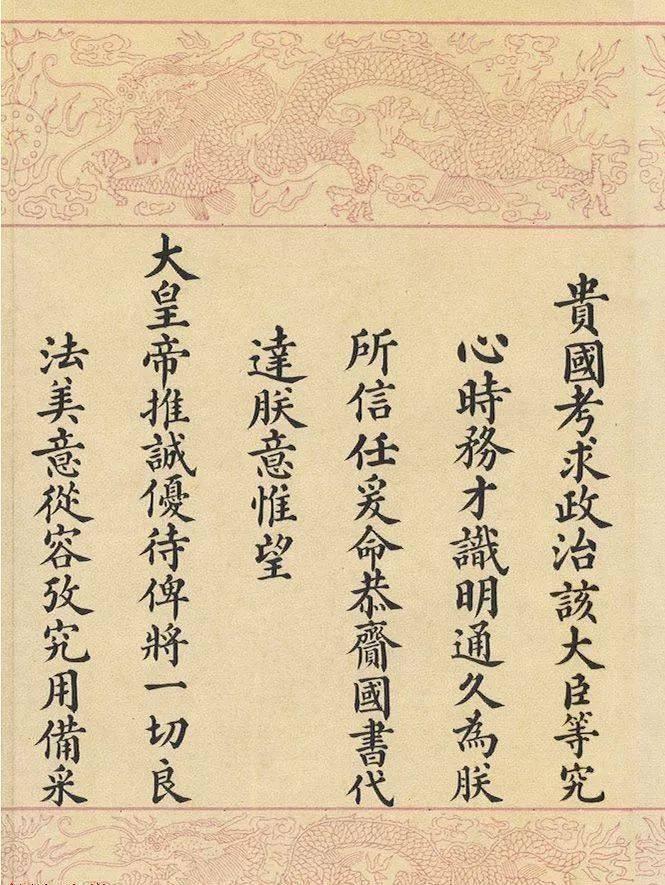 貴國考求政治該大臣等究
心時務才識明通久為朕
所信任爰命恭齎國書代
達朕意惟望
大皇帝推誠優待俾將一切良
法美意從容攷究用備采